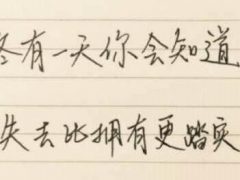 终有一天你会知道
失去比拥有更踏实